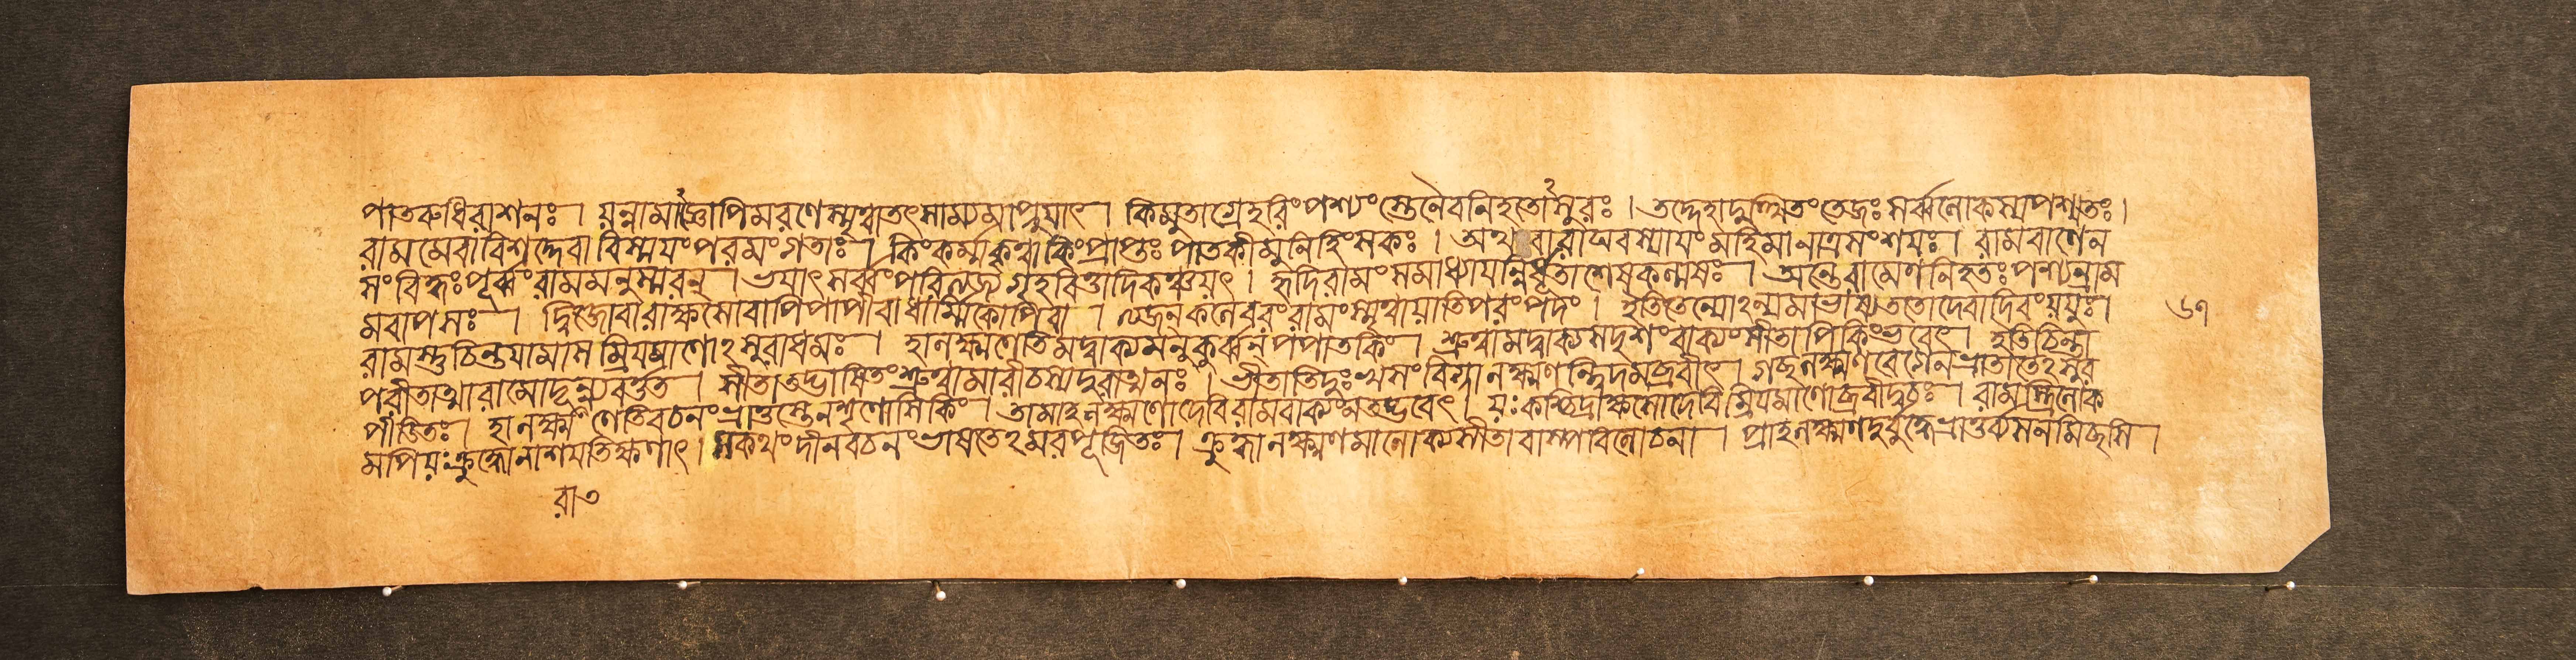 পাতরুধিরাশনঃ । যন্নামাজ্ঞোপিমরণেস্মৃত্বাতৎসাম্যমাপ্নুয়াৎ । কিমুতাগ্রেহরিংপশ্যংস্তেনৈবনিহতোঽসুরঃ । তদ্দেহাদুত্থিতংতেজঃসর্ব্বলোকস্যপশ্যতঃ ।
রামমেবাবিশদ্দেবাবিস্ময়ংপরমংগতাঃ । কিংকর্ম্মকৃত্বাকিংপ্রাপ্তঃপাতকীমুনিহিংসকঃ । অথবারাঘবস্যায়ংমহিমানাত্রসংশয়ঃ । রামবাণেন
সংবিদ্ধঃপূর্ব্বংরামমনুস্মরন্ । ভয়াৎসর্ব্বংপরিত্যজ্যগৃহবিত্তাদিকঞ্চয়ৎ । হৃদিরামংসমাধ্যায়ন্নির্ধূতাশেষকল্মষঃ । অন্তেরামেণনিহতঃপশ্যন্রাম
মবাপসঃ । দ্বিজোবারাক্ষসোবাপিপাপীবাধার্ম্মিকোপিবা । ত্যজন্কলেবরংরামংস্মৃত্বায়াতিপরংপদং । ইতিতেন্যোঽন্যমাভাষ্যততোদেবাদিবংয়য়ুঃ । ৬৭
রামস্তুচিন্তয়ামাসম্রিয়মাণোঽসুরাধমঃ । হালক্ষ্মণেতিমদ্বাক্যমনুকুর্ব্বন্পপাতকিং । শ্রুত্বামদ্বাক্যসদৃশংবাক্যংসীতাপিকিংভবেৎ । ইতিচিন্তা
পরীতাত্মারামোদূরান্ন্যবর্ত্তত । সীতাতদ্ভাষিতংশ্রুত্বামারীচস্যদুরাত্মনঃ । ভীতাতিদুঃখসংবিগ্নালক্ষ্মণন্ত্বিদমব্রবীৎ । গচ্ছলক্ষ্মণবেগেনভ্রাতাতেঽসুর
পীড়িতঃ । হালক্ষ্মণেতিবচনংভ্রাতুস্তেনশৃণোসিকিং । তামাহলক্ষ্মণোদেবিরামবাক্যংনতদ্ভবেৎ । য়ঃকশ্চিদ্রাক্ষসোদেবিম্রিয়মাণোব্রবীদ্বচঃ । রামস্ত্রিলোক
মপিয়ঃক্রুদ্ধোনাশয়তিক্ষণাৎ । সকথংদীনবচনংভাষতেঽমরপূজিতঃ । ক্রুদ্ধালক্ষ্মণমালোক্যসীতাবাষ্পবিলোচনা । প্রাহলক্ষ্মণদুর্বুদ্ধেভ্রাতুর্ব্যসনমিচ্ছসি ।
রাত